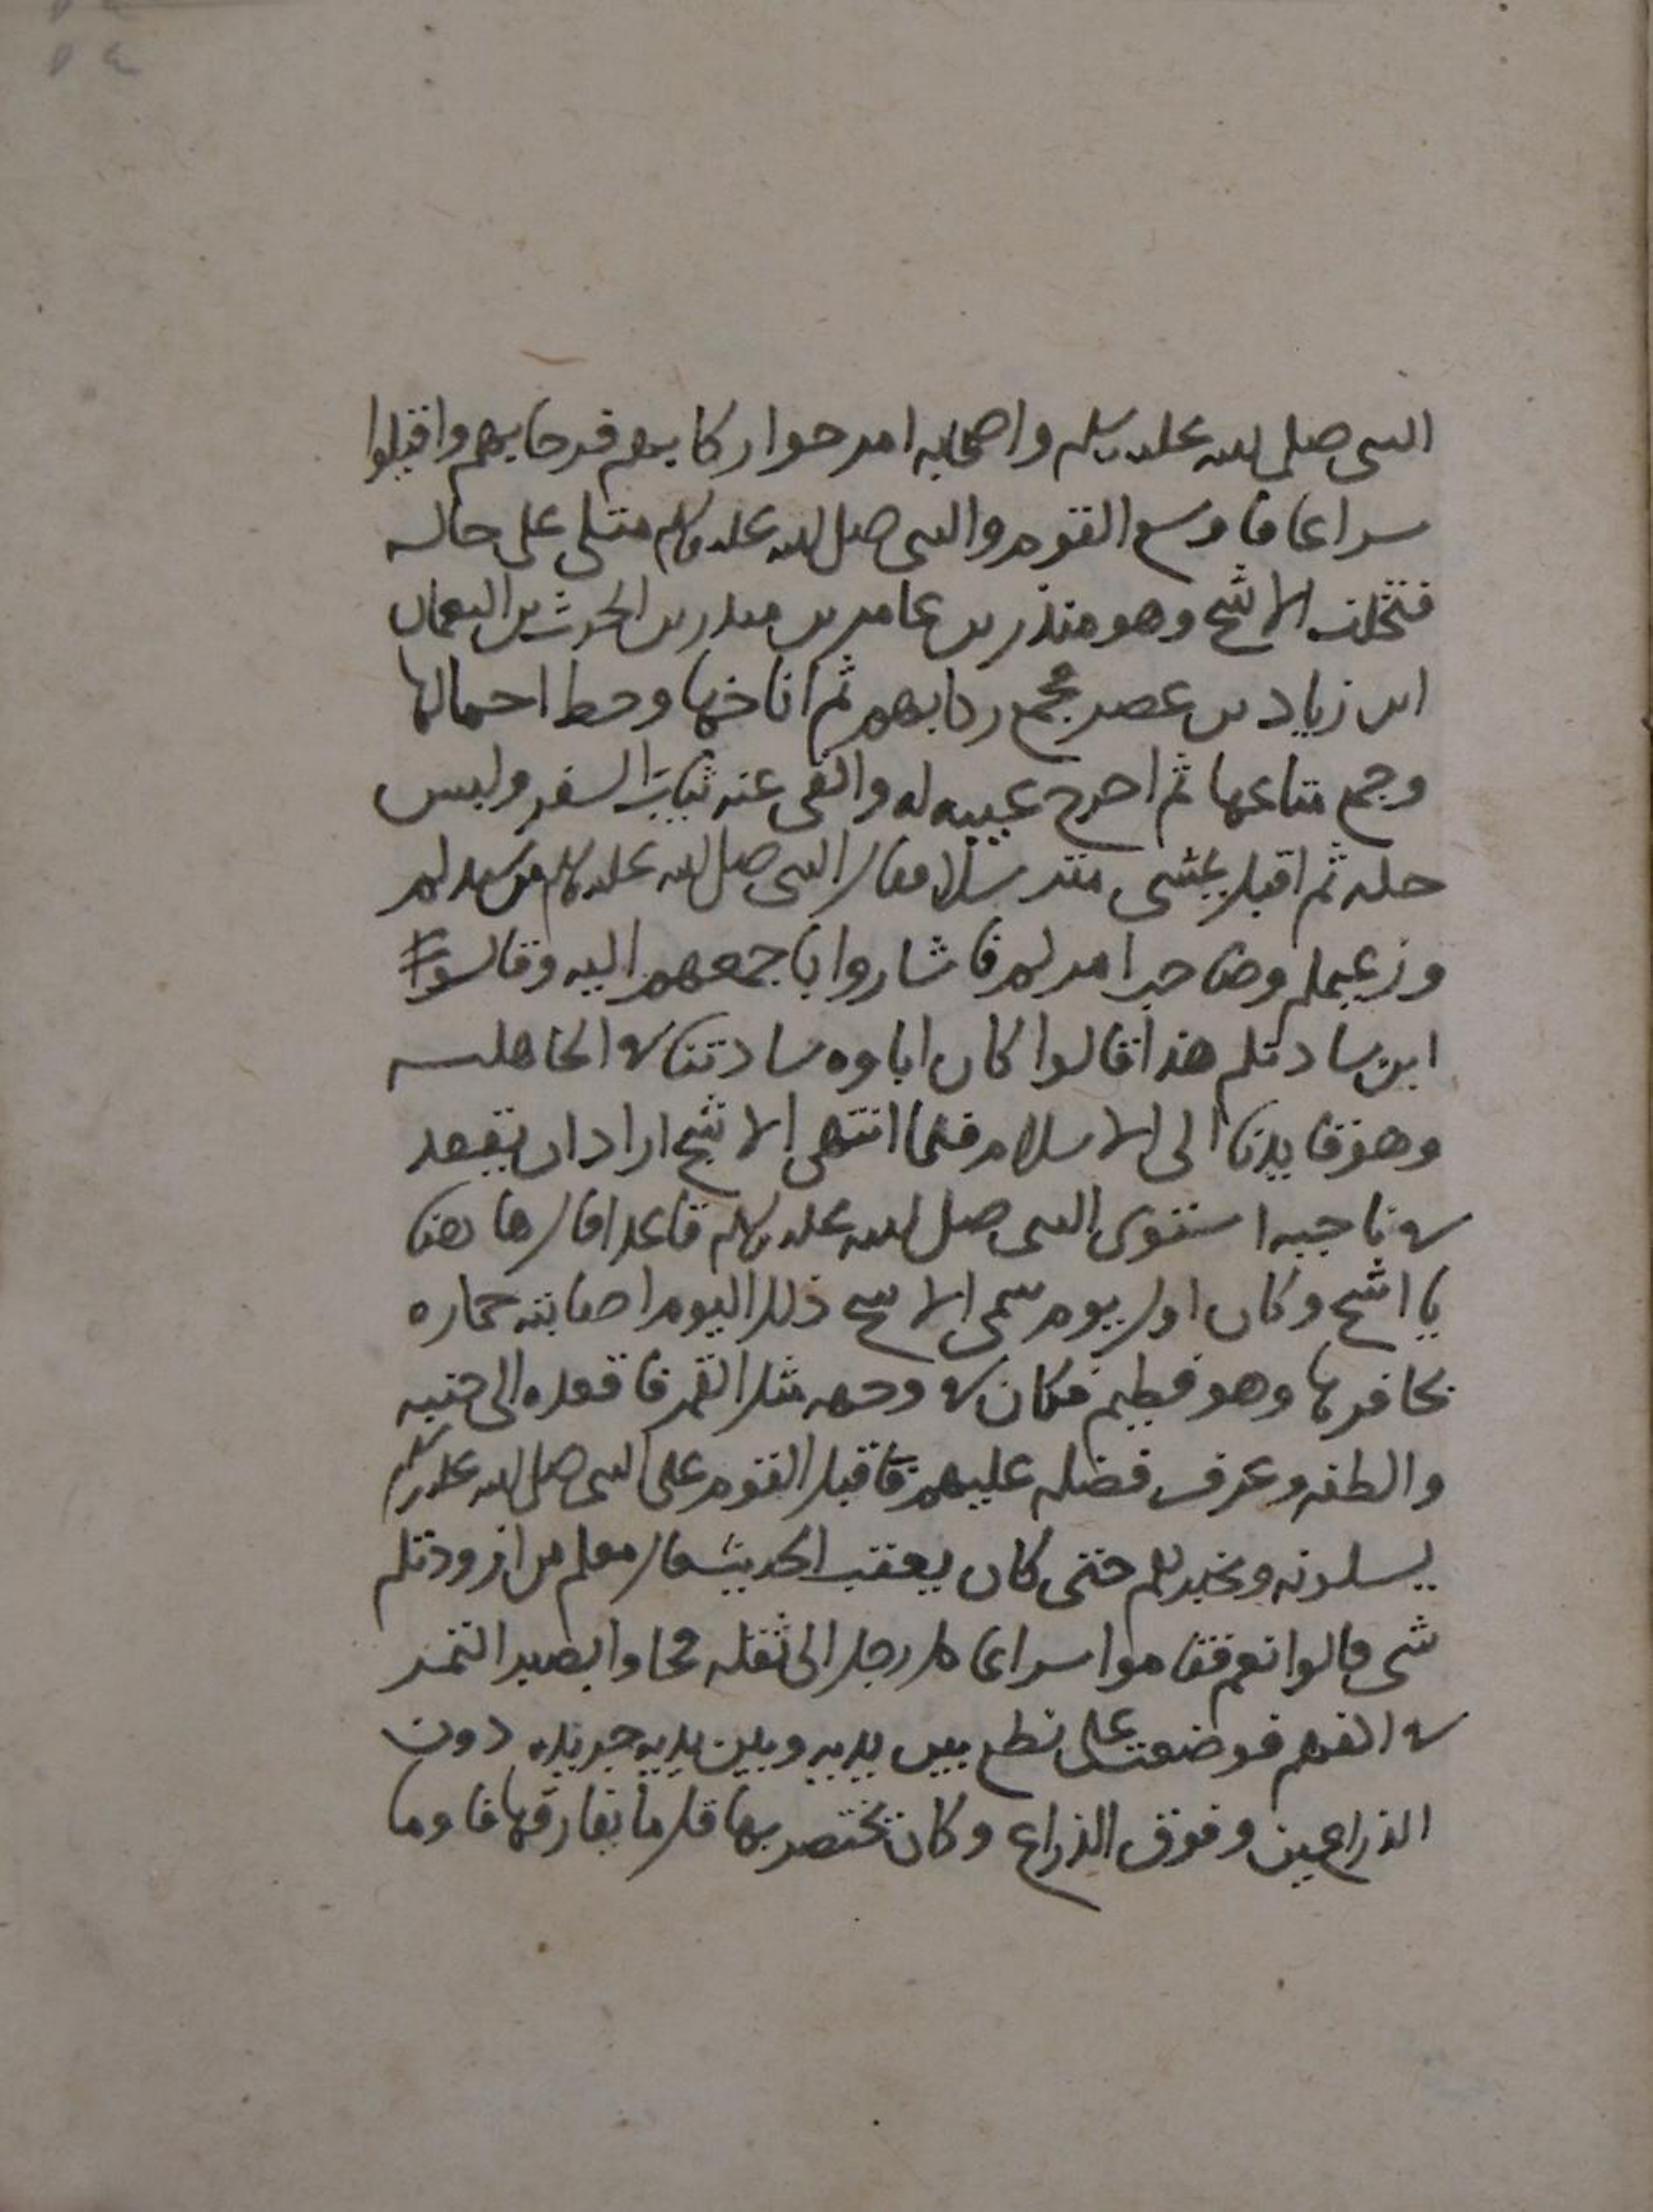 النبي صلى الله عليه وسلم واصحابه امرحوا ركابهم فرحا بهم واقبلوا
سراعا فاوسع القوم والنبي صلى الله عليه وسلم متكي على حاله
فتخلف الاشج وهو منذر بن عامر بن منذر بن الحرث بن النعمان
ابن زياد بن عصر فجمع ركابهم ثم اناخها وحط احمالها
وجمع متاعها ثم اخرج عيبيه له والقى عنه ثياب السفر ولبس
حله ثم اقبل يمشي مترسلا فقال النبي صلى الله عليه وسلم من سيدكم
وزعيمكم وصاحب امركم فاشاروا باجمعهم اليه وقالوا
ابن سادتكم هذا قالوا كان اباوه سادتنا في الجاهليه
وهو قايدنا الى الاسلام فلما انتهى الاشج اراد ان يقعد
في ناحيه استوى النبي صلى الله عليه وسلم قاعدا قال هاهنا
يا اشج وكان اول يوم سمي الاشج ذلك اليوم اصابته حماره
بحافرها وهو فطيم فكان في وجهه مثل القمر فاقعده الى جنبه
والطفه وعرف فضله عليهم فاقبل القوم على النبي صلى الله عليه وسلم
يسلونه ويخبرهم حتى كان بعقب الحديث قال معكم من ازودتكم
شي قالوا نعم فقاموا سراعا كل رجل الى ثقله فجاوا بصبر التمر
في اكفهم فوضعت على نطع بين يديه وبين يديه جريده دون
الذراعين وفوق الذراع وكان يختصر بها قل ما يفارقها فاوما